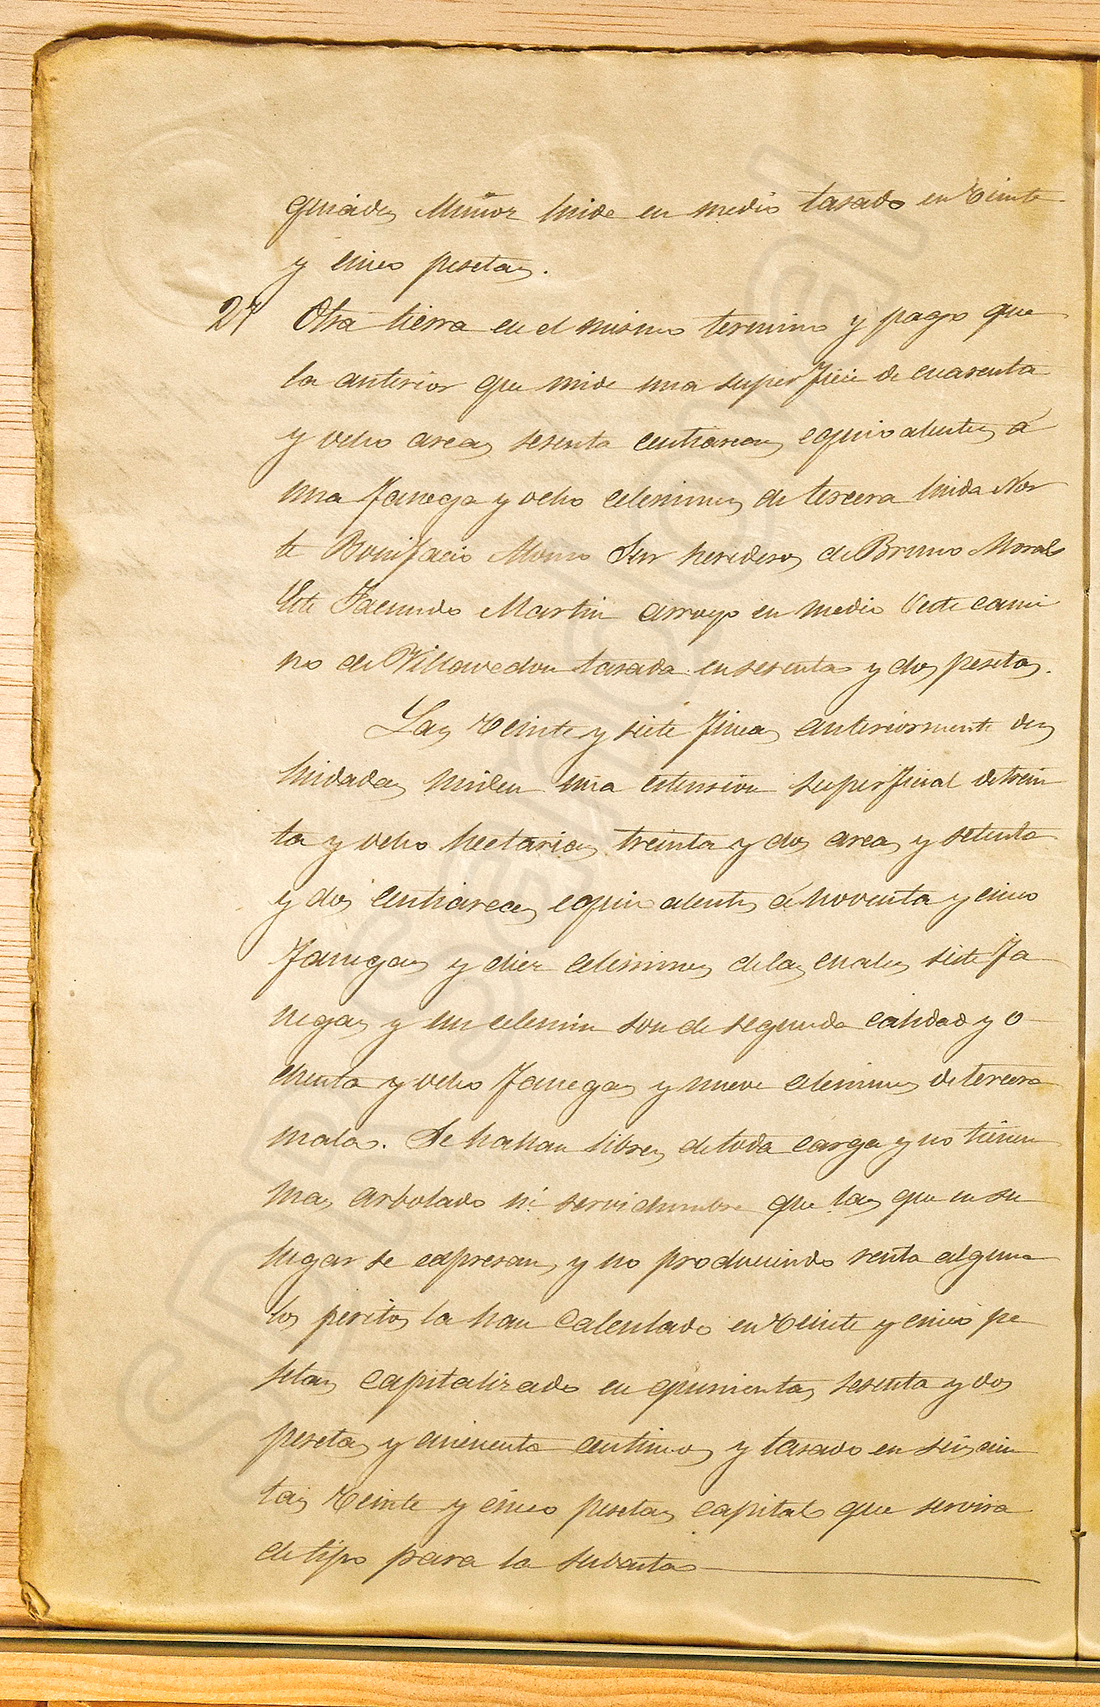 Muñoz linde en medio tasado en Veinte
y cinco pesetas.
27 Otra tierra en el mismo termino y pago que
la anterior que mide una superficie de cuarenta
y ocho areas sesenta centiareas equivalentes á
una fanega y ocho celemines de tercera linda Nor
te Bonifacio Alonso Sur herederos de Bruno Moral
Este Facundo Martin arroyo en medio Oeste cami
no de tasada en sesenta y dos pesetas.
Las Veinte y siete fincas anteriormente des
lindadas miden una estension superficial de trein
ta y ocho hectarias treinta y dos areas y setenta
y dos centiareas equivalentes á noventa y cinco
fanegas y diez celemines de las cuales siete fa
negas y un celemin son de segunda calidad y o
chenta y ocho fanegas y nueve celemines de tercera
mala. Se hallan libres de toda carga y no tienen
mas arbolado ni servidumbre que las que en su
lugar se expresan, y no produciendo renta alguna
los peritos la han calculado en Veinte y cinco pe
setas capitalizado en quinientas sesenta y dos
pesetas y cincuenta centimos y tasado en seiscien
tas Veinte y cinco pesetas capital que servira
de tipo para la subasta